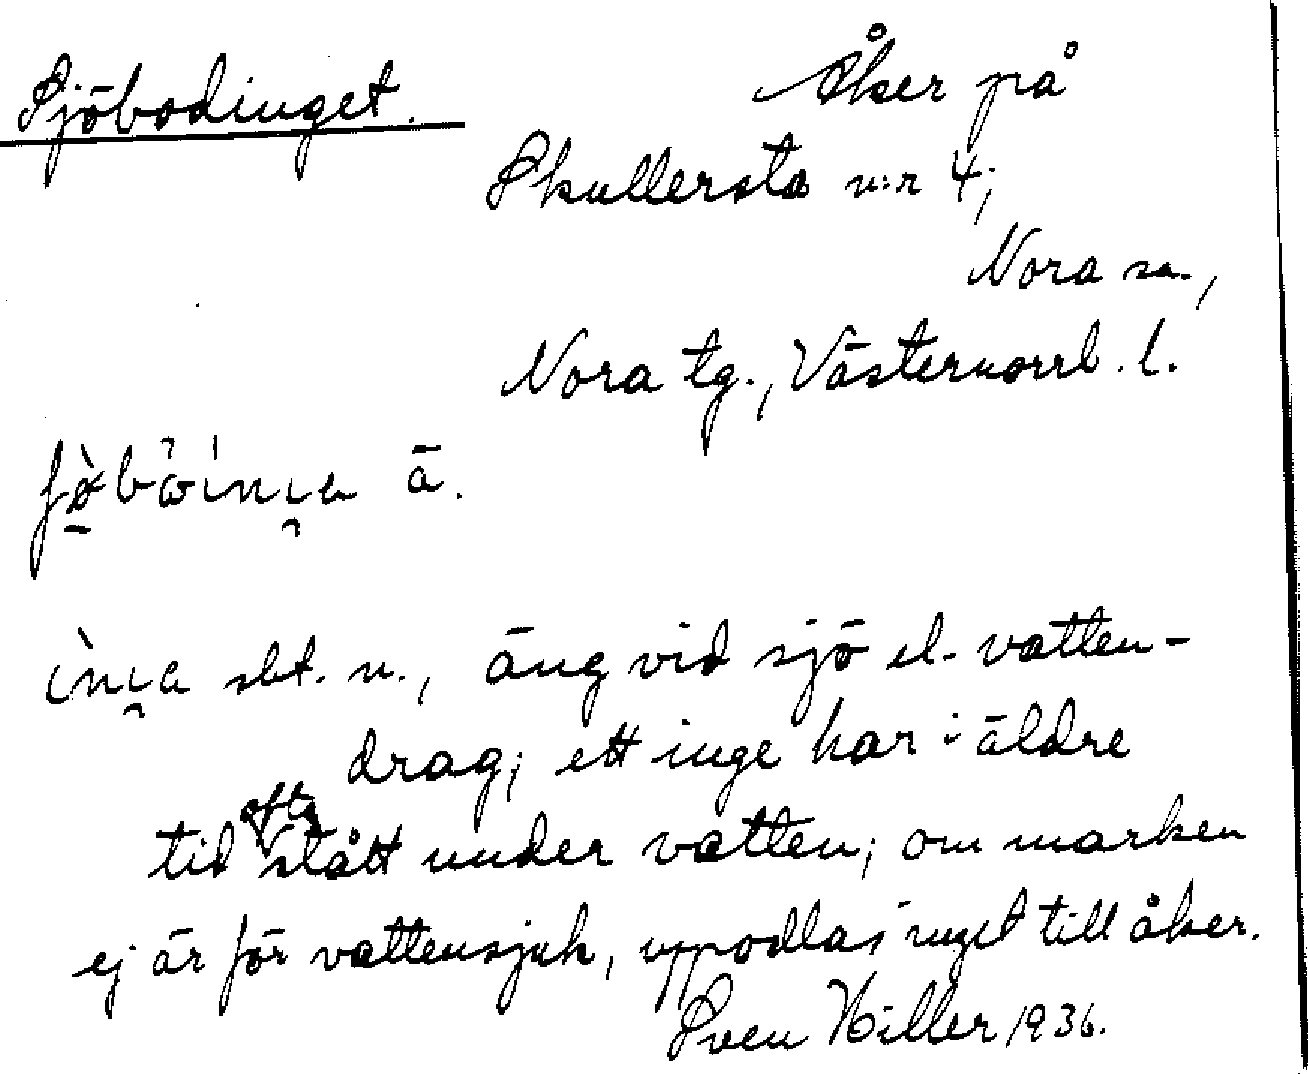 Sjöbodinget.
Åker på
Skullersta n:r 4;
Nora sn.,
Nora tg., Västernorrl. l.
ā.
sbt. n., äng vid sjö el. vatten-
drag; ett inge har i äldre
tid ofta stått under vatten; om marken
ej är för vattensjuk, uppodlas inget till åker.
Sven Hiller 1936.